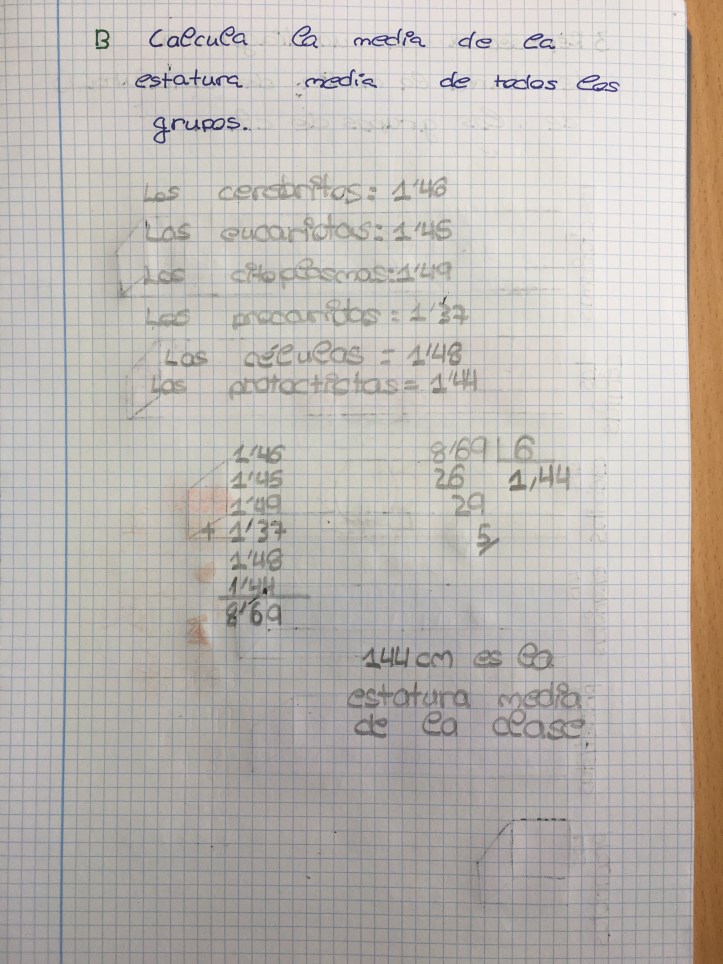 B Calcula la media de la
estatura media de todos los
grupos.
Los cerebritos: 1'46
Las eucariotas: 1'45
Los citoplasmas: 1'49
Las procariotas = 1'37
Las células = 1'48
Las protoctistas = 1'44
1'46
1'45
1'49
+ 1'37
1'48
1'44
8'69
8'69 6
26 1,44
29
5
144 cm es la
estatura media
de la clase.